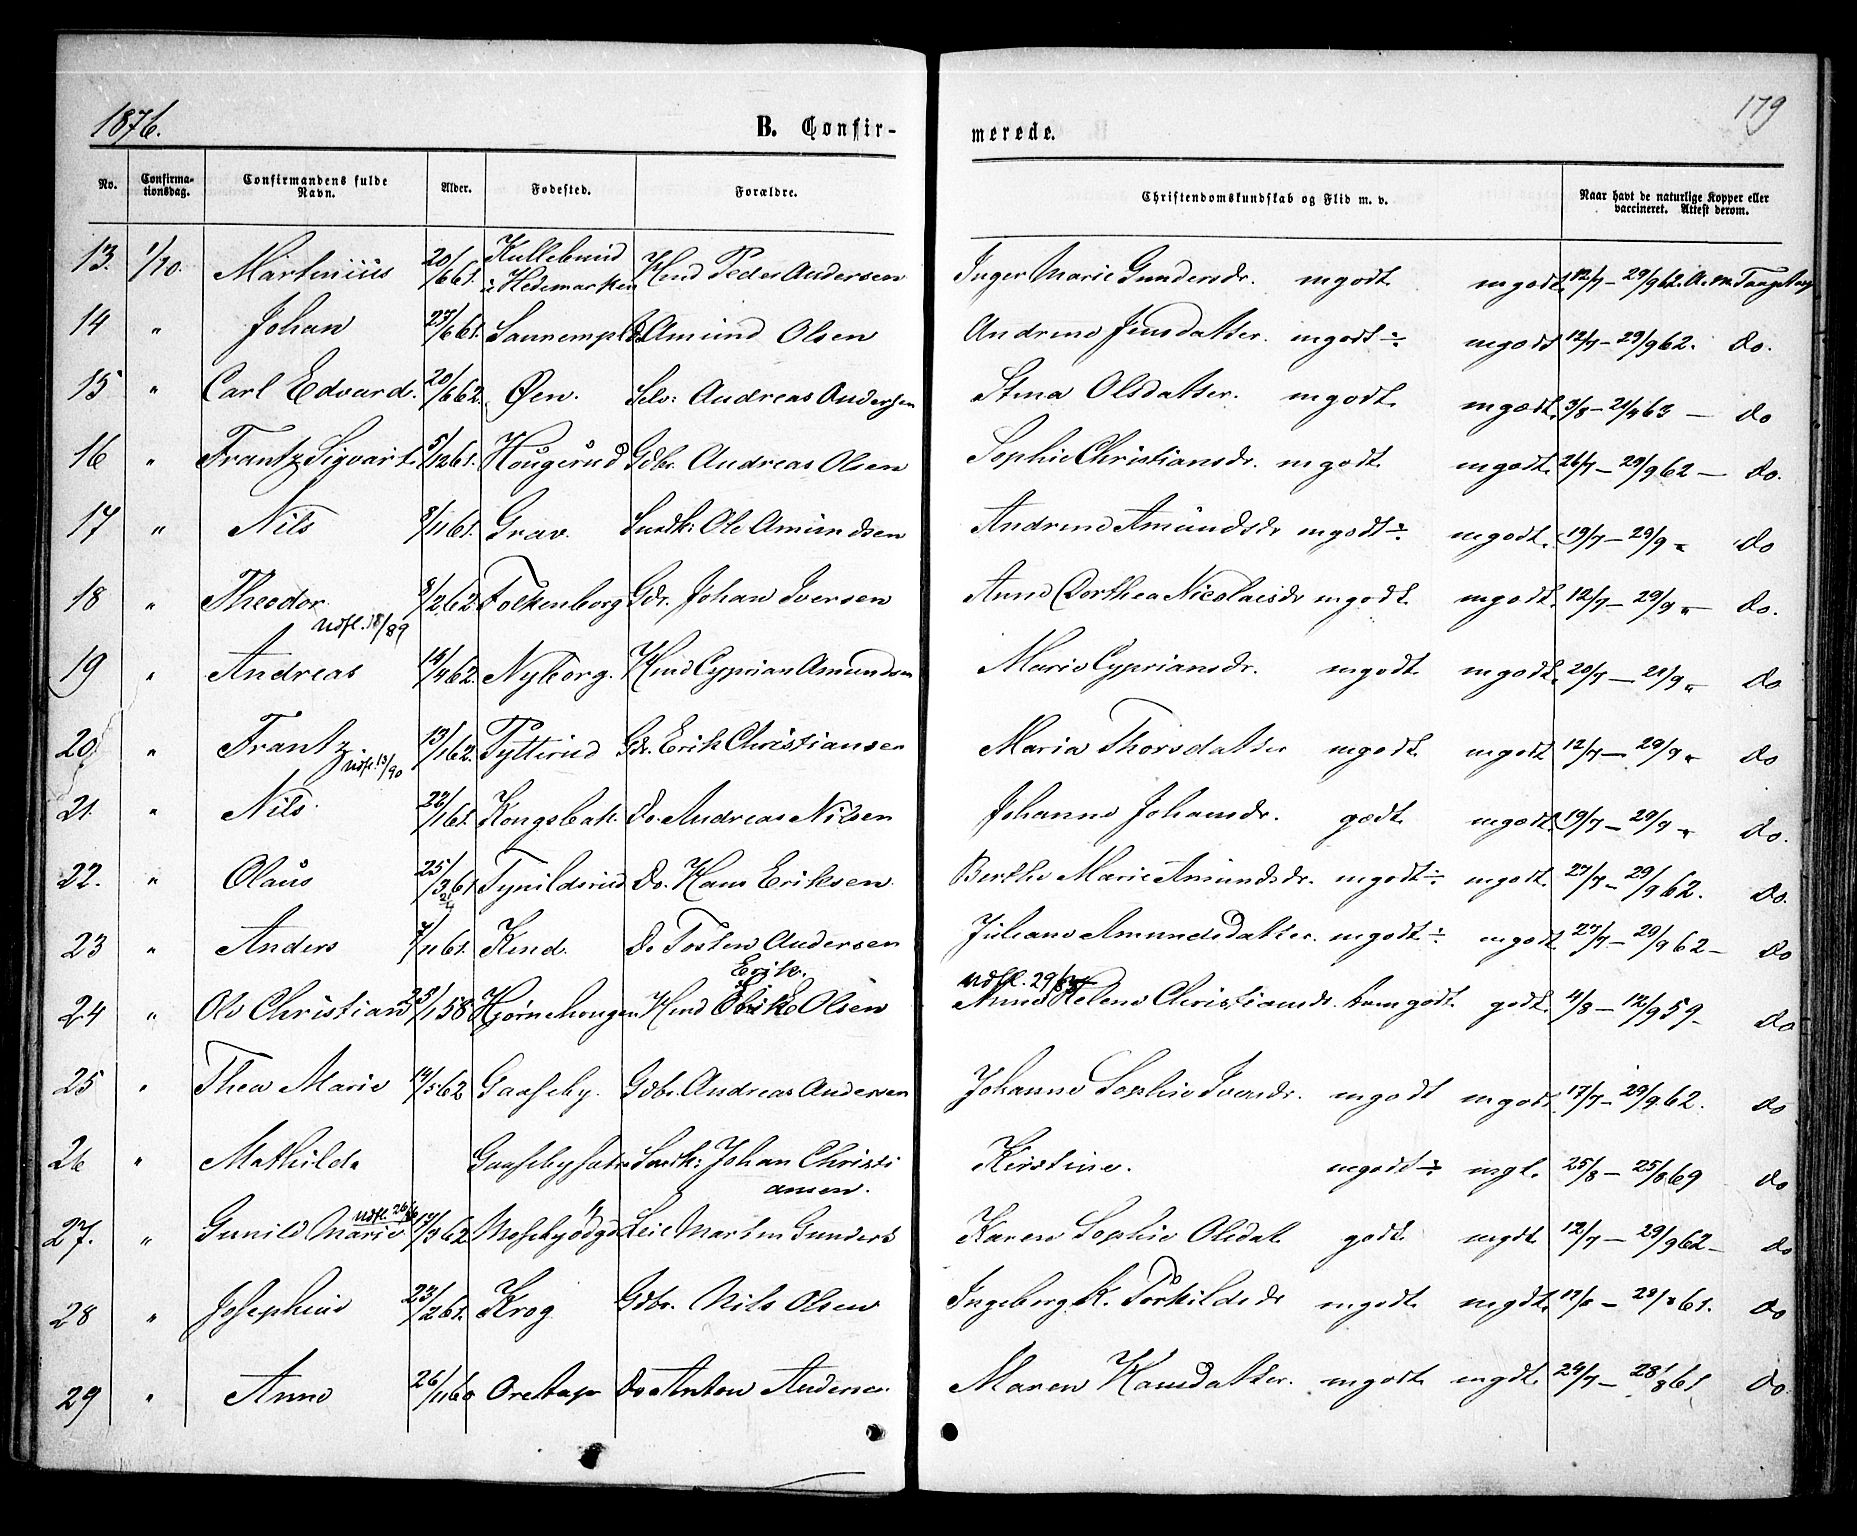 1876.
B. Confir-
merede.
179
No. Confirma-tionsdag. Confirmandens fulde Navn. Alder. Fødested. Forældre. Christendomskundskab og Flid m. v. Naar havt de naturlige Kopper eller vaccineret. Attest derom.
13. 1/10. Martinius 20/6 61. Kullebund i Hedemarken Hmd Peder Andersen Inger Marie Gundersdr. mgodt mgodt. 12/7 – 29/9 62. A. m.
14 " Johan 27/6 61. Amund Olsen Andrine Jensdatter. mgodt ÷. mgodt 12/7 – 29/9 62. do.
15 " Carl Edvard. 20/6 62. Øen. Selv: Andreas Andersen Stina Olsdatter. mgodt. mgodt. 3/8 – 21/8 63 – do
16 " Frantz Sigvart. 5/12 61. Hougerud Gdbr. Andreas Olsen Sophie Christiansdr. mgodt. mgodt. 26/7 – 29/9 62 – do.
17 " Nils 8/11 61. Grav. Ole Amundsen Andrine Amundsdr mgodt ÷. mgodt. 19/7 – 29/9 " do
18 " Theodor. 9/2 62. Folkenborg Gdr. Johan Iversen Anne Dorthea Nicolaisdr mgodt. mgodt. 12/7 – 29/9 " do.
Udfl. 18/89
19 " Andreas 14/4 62. Nyborg. Hmd Cyprian Amundsen Marie Cypriansdr. mgodt mgodt. 20/7 – 21/9 " do
20 " Frantz 13/1 62. Tytterud Gdr. Erik Christiansen Maria Thorsdatter mgodt mgodt 12/7 – 29/9 " do
Udfl. 13/90
21. " Nils. 22/1 61. Kongsbak. do. Andreas Nilsen Johanne Johansdr. godt. mgodt. 19/7 – 29/9 " do.
22. " Olaus 25/3 61 Tynildsrud do. Hans Eriksen. Berthe Marie Amundsdr. mgodt ÷. mgodt. 27/7 – 29/9 62. do.
23 " Anders 7/11 61. Kind. do Tosten Andersen Juliane Amundsdatter. mgodt ÷. mgodt. 27/7 – 29/9 62 – do
Erik.
Udfl. 29/
24 " Ole Christian 28/1 58 Hjørnehougen Hmd Olsen Anne Helene Christiansdr. tmgodt. godt. 4/8 – 12/9 59 – do
25 " Thea Marie 14/5 62 Gaaseby. Gdbr. Andreas Andersen Johanne Sophie Iversdr. mgodt mgodt. 17/7 – 29/9 62. do
26 " Mathilde Johan Christi Kirstine. mgodt ÷. mgt. 25/8 – 25/8 69 do
ansen.
Udfl. 26/
27. " Gunild Marie 17/3 62 Leil Martin Gunders Karen Sophie Olsdat. godt. mgdt. 12/7 – 29/9 62 – do
28 " Josephine 23/2 61. Krog Gdbr. Nils Olsen Ingeborg K. Torkildsdr mgodt. mgdt. – 28/8 61. do
29 " Anne 26/11 60 do Anton Andersen. Maren Hansdatter. mgodt. mgdt. 24/7 – 28/8 61 do.